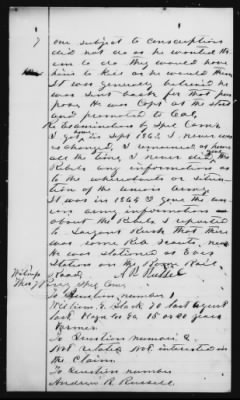 7 one subject to conscription
did not do as he wanted th
em to do they would have
him to Kill as he would them
It was generally believed he
was sent back for that pur
pose He was Capt at the start
and promoted to Col,
Re Examination by Spl Comr
I got home in Sept 1862 I never was
exchanged, I remained at home
all the time, I never gave the
Rebels any information as
to the whereabouts or situa
tion of the union army
It was in 1864 I gave the un
ion army information
about the Rebels I reported
to Sargent Rusk that there
was some Reb Scouts, near
He was stationed at
Station on the Rail
Road, A R Russell
Witness
Thos J Spl Com
To Question number 1
William G. 70 last age
Lock Ga 15 or 20 years
Farmer
To Question number 2.
Not related Not interested in
the Claim.
To Question number
Andrew R. Russell.